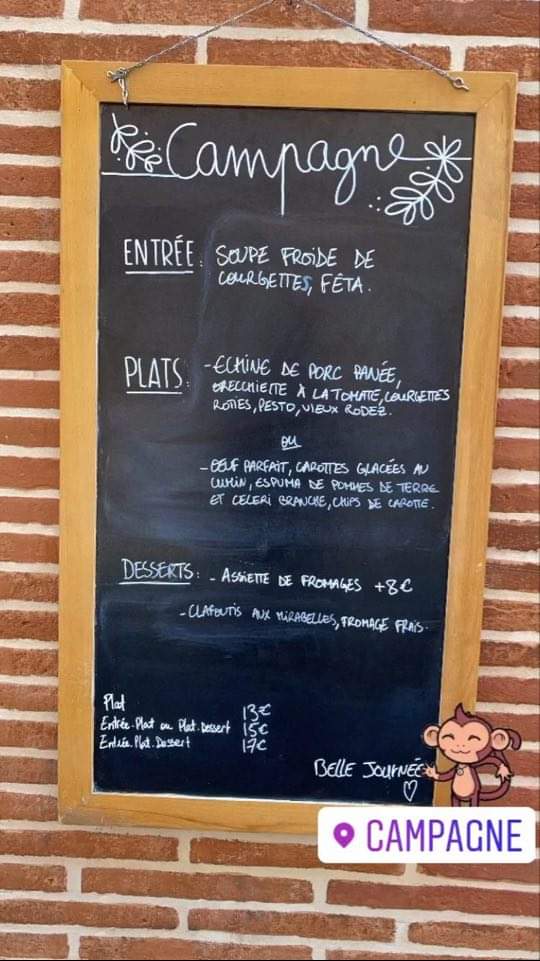 Campagne
ENTRÉE : SOUPE FROIDE DE
COURGETTES, FÉTA.
PLATS : - ECHINE DE PORC PANÉE,
ORECCHIETTE À LA TOMATE, COURGETTES
ROTIES, PESTO, VIEUX RODEZ.
ou
- OEUF PARFAIT, CAROTTES GLACÉES AU
CUMIN, ESPUMA DE POMMES DE TERRE
ET CELERI BRANCHE, CHIPS DE CAROTTE.
DESSERTS : - ASSIETTE DE FROMAGES +8€
- CLAFOUTIS AUX MIRABELLES, FROMAGE FRAIS.
Plat 13€
Entrée.Plat ou Plat.Dessert 15€
Entrée.Plat.Dessert 17€
BELLE JOURNÉE
CAMPAGNE